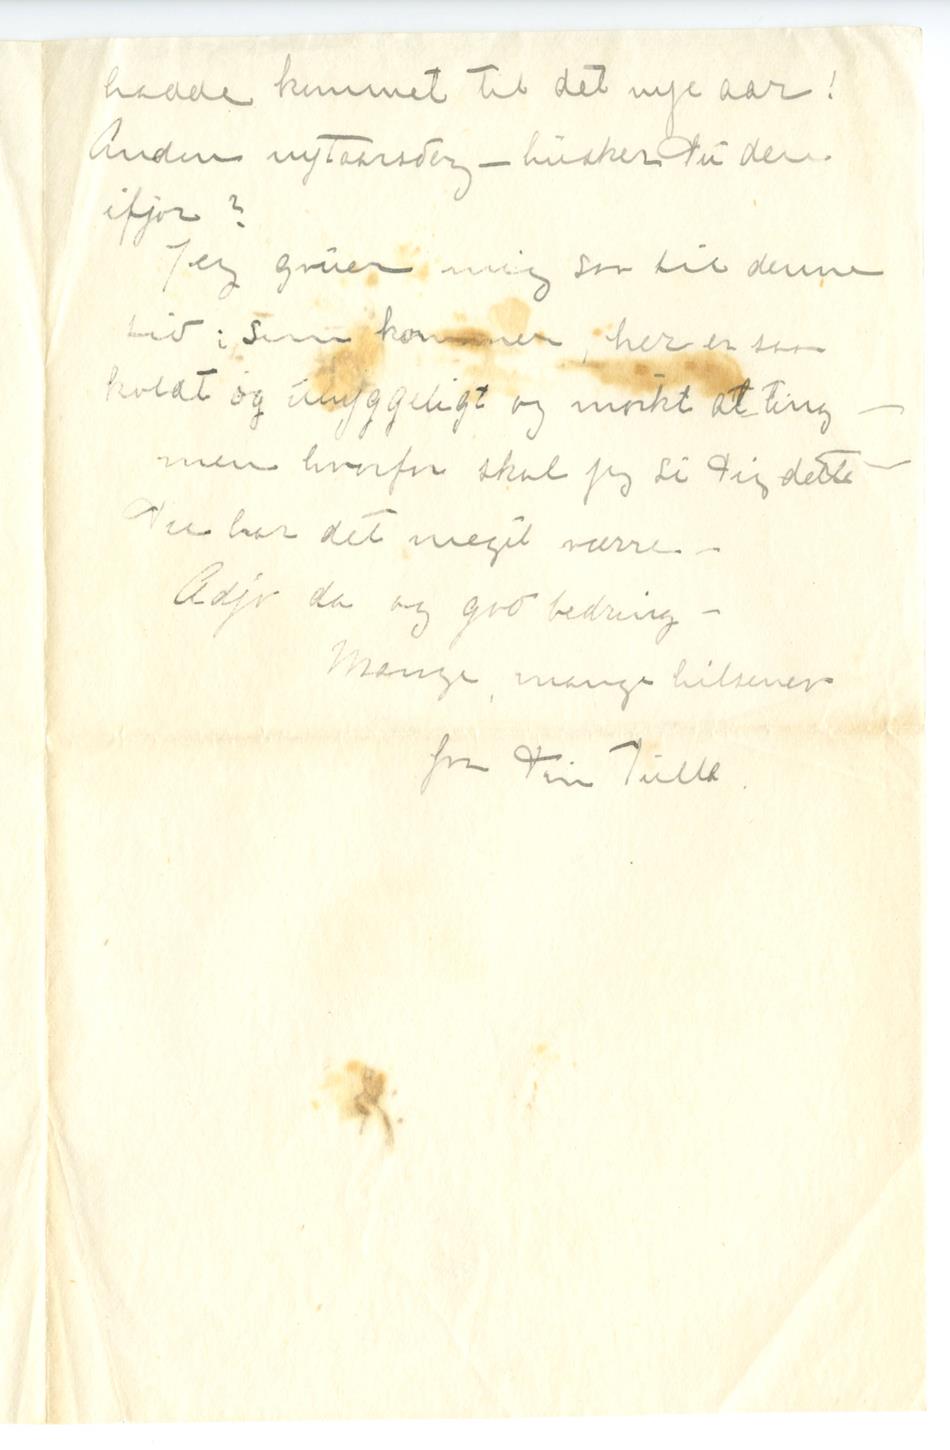 hadde kommet til det nye aar!
Anden nytaarsdag – husker Du den
ifjor?
Jeg gruer mig saa til denne
tid, som kommer, her er saa
koldt og uhyggeligt og mörkt alting –
men hvorfor skal jeg si Dig dette –
Du har det meget værre –
Adjø da og god bedring –
Mange, mange hilsener
fra Din Tulla.